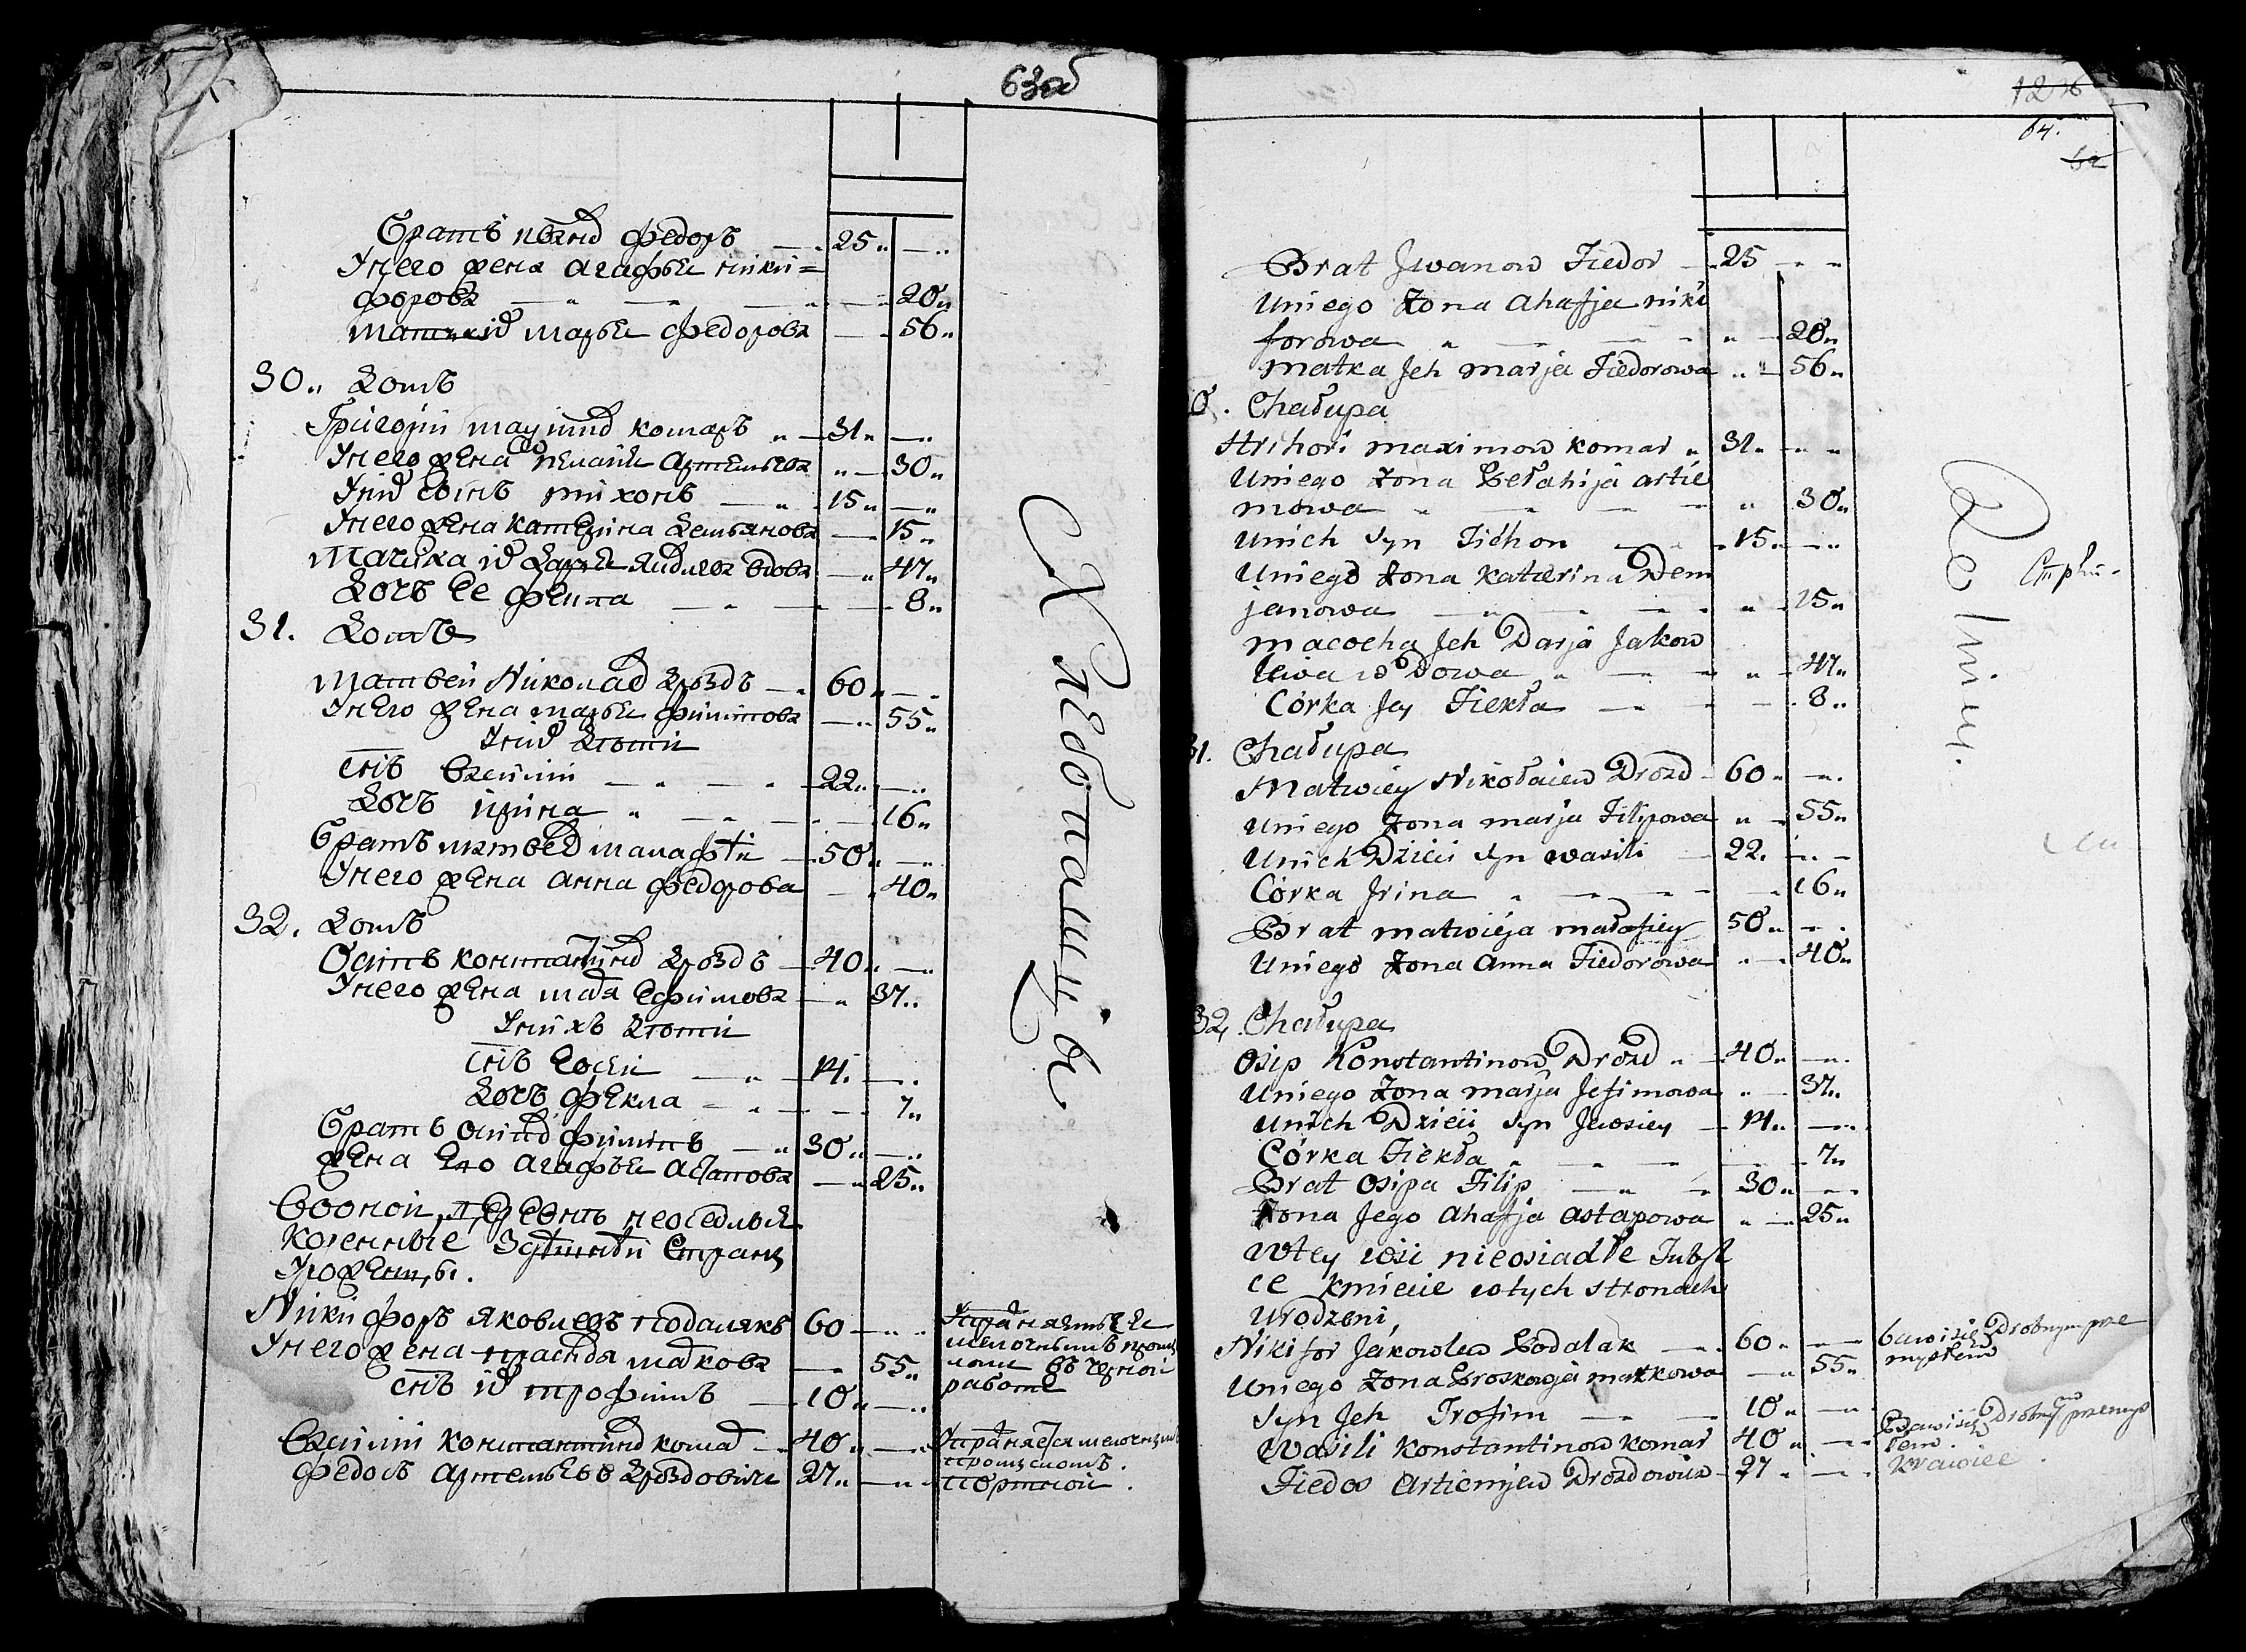 63об
Братъ Ивановъ Федоръ — 25 —
У него жена Агафья Ники=
форова — — — 20
Матка ихъ Марья Федорова — 56
30. Домъ
Григорій Маѯимовъ Комаръ — 31 —
У него жена Пелагия Артемьева — 30
У нихъ сынъ Тихонъ — 15 —
У него жена Катерина Демьянова — 15
Мачиха ихъ Дарья Яковлева вдова — 47
Дочь ее Фекла — — 8
31. Домъ
Матвей Николаевъ Дроздъ — 60 —
У него жена Марья Филипова — 55
У нихъ дѣти
снъ Василий — — 22 —
Дочь Ирина — — 16
Братъ Матвеевъ Малафѣй — 50 —
У него жена Анна Федорова — 40
32. Домъ
Осипъ Константиновъ Дроздъ — 40 —
У него жена Марья Ефимова — 37
У нихъ дѣти
снъ Евсей — 14 —
Дочь Фекла — — 7
Братъ Осиповъ Филипъ — 30 —
Жена его Агафья Астапова — 25
В оной деревнѣ неоседлыя
коренные здешней стране
уроженцы.
Никифоръ Яковлевъ Подалякъ 60 —
У него жена Прасковья Маркова — 55
снъ ихъ Трофимъ — 10 —
Василий Константиновъ Комаръ — 40 —
Федосъ Артемьевъ Дроздовичъ 27 —
Упражняются
мелочнымъ промы
въ черной
работе
Упражняется мелочнымъ
промысломъ.
Портной.
Хлебопашцы
64.
Brat Jwanow Fiedor — 25 —
Uniego Żona Ahafja niki
forowa — — — 20
matka Jch marja Fiedorowa — 56
0. Chałupa
Hrihori maximow komar 31 —
Uniego Żona Pełahija artie
mowa — — — 30
Unich Syn Tichon — 15 —
Uniego Żona katerina Dem
janowa — — — 15
macocha Jch Darja Jakow
lewa wdowa — — 47
Córka Jey Fiekła — — 8
31. Chałupa
Matwiey Nikołaiew Drozd — 60 —
Uniego Żona marja Filipowa — 55
Unich Dzieci Syn wasili — 22 —
Córka Jrina — — 16
Brat matwieja małafiey 50 —
Uniego Żona Anna Fiedorowa — 40
32. Chałupa
Osip Konstantinow Drozd — 40 —
Uniego Żona marja Jefimowa — 37
Unich Dzieci Syn Jewsiey — 14 —
Córka Fiekła — — 7
Brat Osipa Filip — 30 —
Żona Jego Ahafja Astapowa — 25
wtey wsi nieosiadłe
ce kmiecie wtych stronach
Urodzeni,
Nikifor Jakowlew Podalak — 60 —
Uniego Żona Proskowja markowa — 55
Syn Jch Trofim — 10 —
Wasili Konstantinow komar 40 —
Fiedos Artiemjew Drozdowicz — 27 —
bawi się Drobnym prze
mysłem
Bawi się Drobny przemys
łem.
Krawiec.